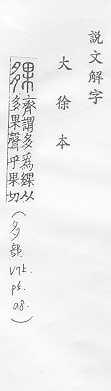 說文解字
大徐本
夥 齊謂多爲夥从
多果聲乎果切
(多部
V7上.
p5.
a8.)